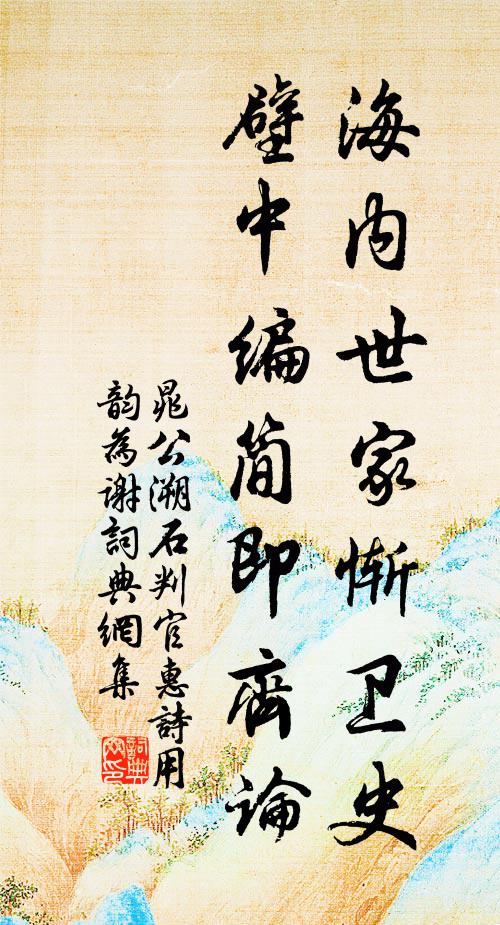 海内世家惭卫史
壁中编简即齊论
晁公溯石判官惠詩用
韵為谢詞典網集
詞典